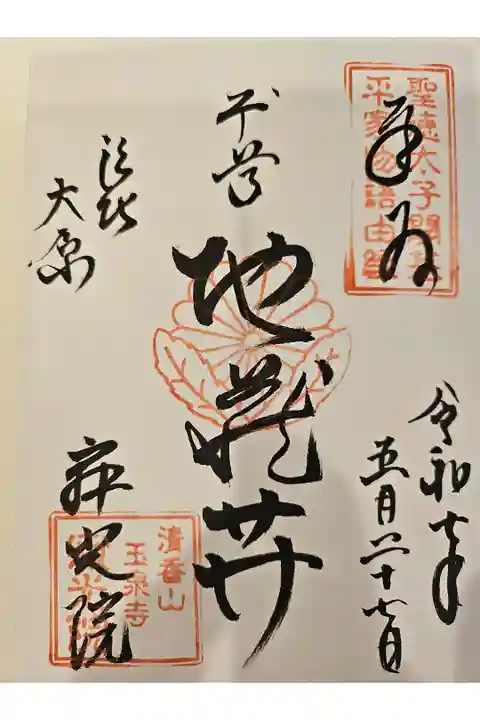 奉拝
聖徳太子開基
平家物語由縁
令和七年
五月二十七日
本尊
地蔵艹
洛北
大原
寂光院
清香山
玉泉寺
寂光院